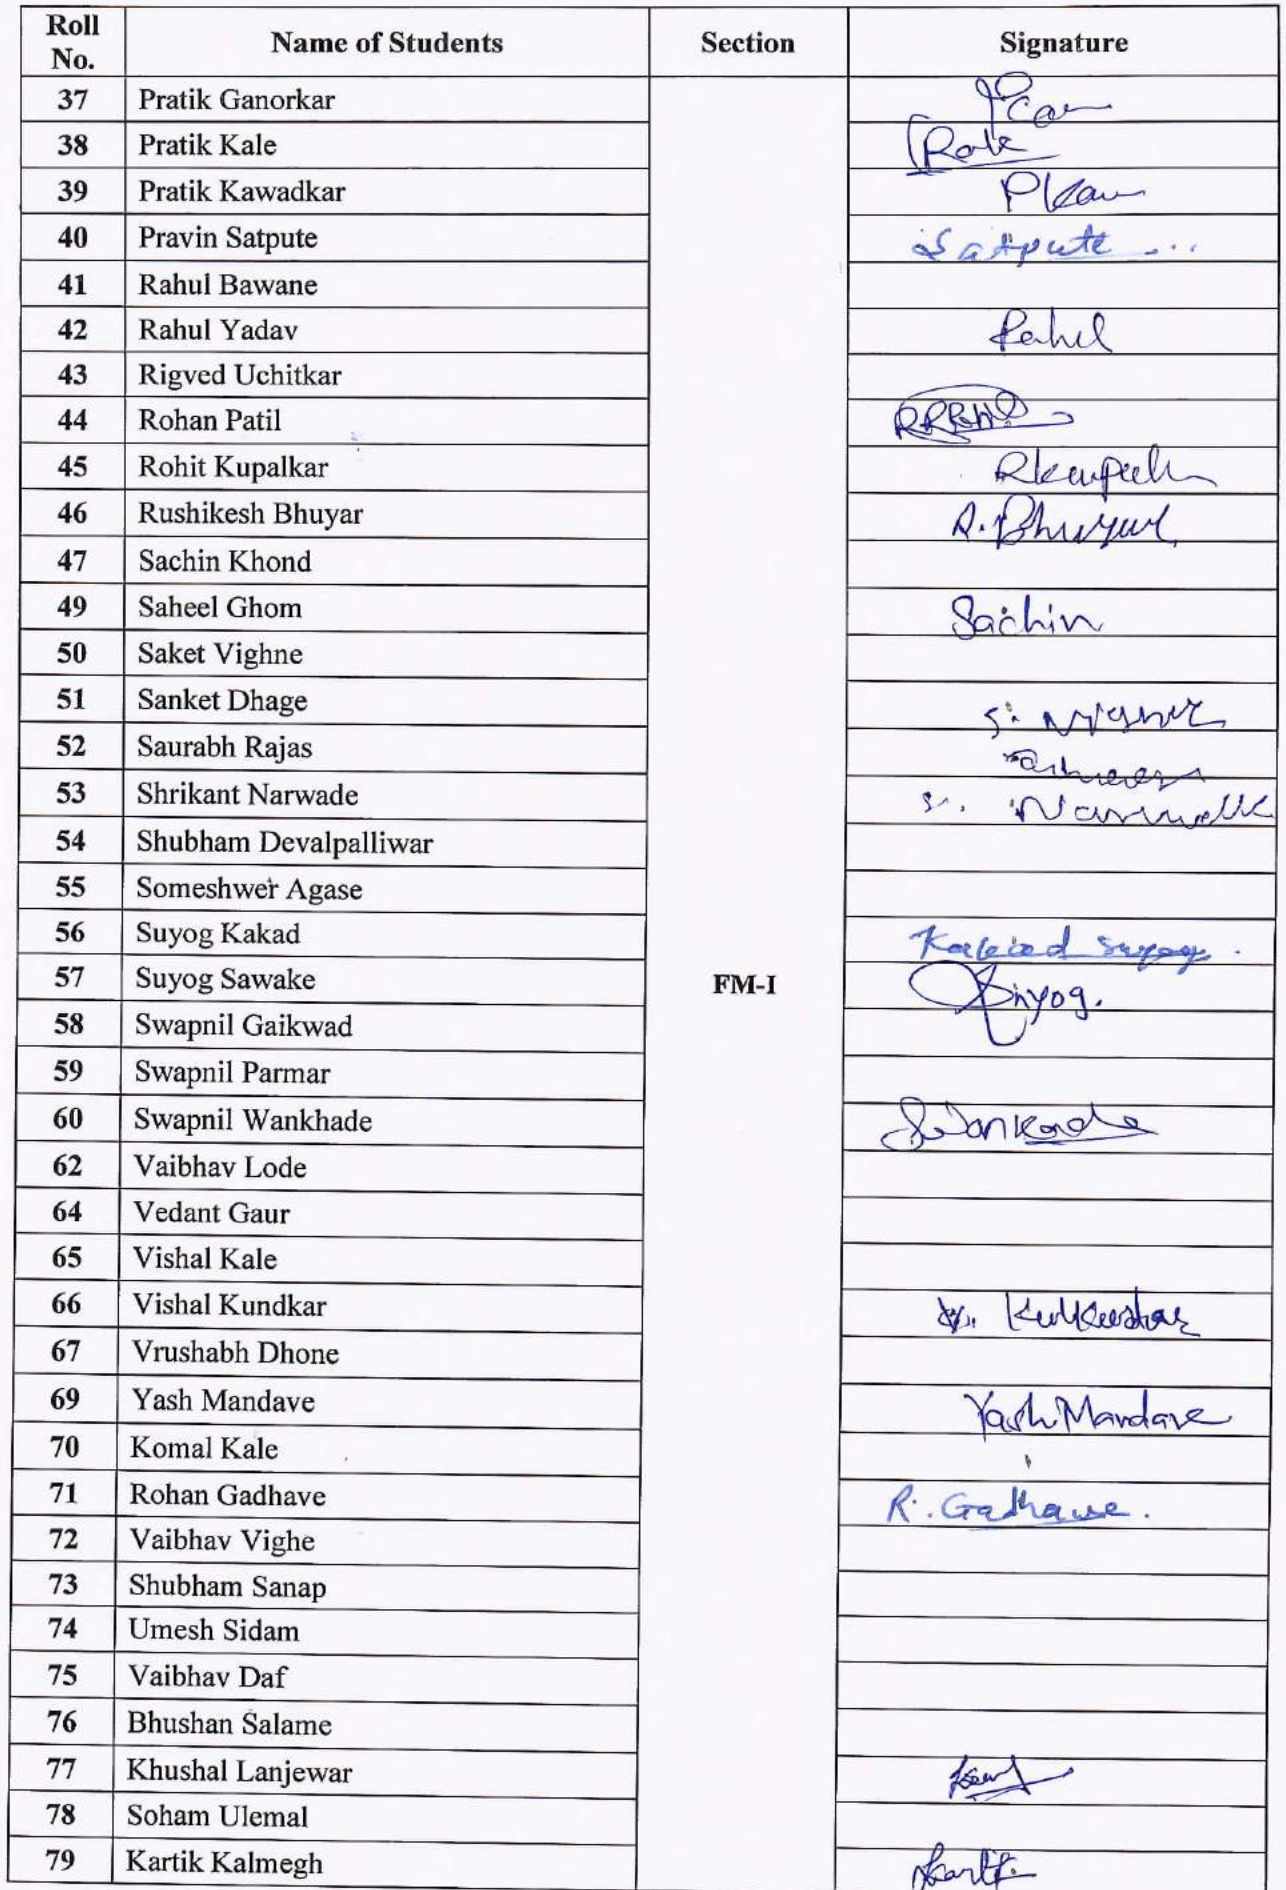 Roll No. Name of Students Section Signature
37 Pratik Ganorkar
38 Pratik Kale
39 Pratik Kawadkar PKaw
40 Pravin Satpute Satpute ...
41 Rahul Bawane
42 Rahul Yadav Rahul
43 Rigved Uchitkar
44 Rohan Patil
45 Rohit Kupalkar
46 Rushikesh Bhuyar R. Bhuyar
47 Sachin Khond
49 Saheel Ghom Sachin
50 Saket Vighne
51 Sanket Dhage S. Vighne
52 Saurabh Rajas
53 Shrikant Narwade
54 Shubham Devalpalliwar
55 Someshwer Agase
56 Suyog Kakad Kakad Suyog.
57 Suyog Sawake FM-I Suyog.
58 Swapnil Gaikwad
59 Swapnil Parmar
60 Swapnil Wankhade
62 Vaibhav Lode
64 Vedant Gaur
65 Vishal Kale
66 Vishal Kundkar
67 Vrushabh Dhone
69 Yash Mandave Yash Mandave
70 Komal Kale
71 Rohan Gadhave R. Gadhave.
72 Vaibhav Vighe
73 Shubham Sanap
74 Umesh Sidam
75 Vaibhav Daf
76 Bhushan Salame
77 Khushal Lanjewar
78 Soham Ulemal
79 Kartik Kalmegh Kartik